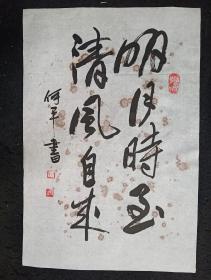 明月時至
清風自来
何平書